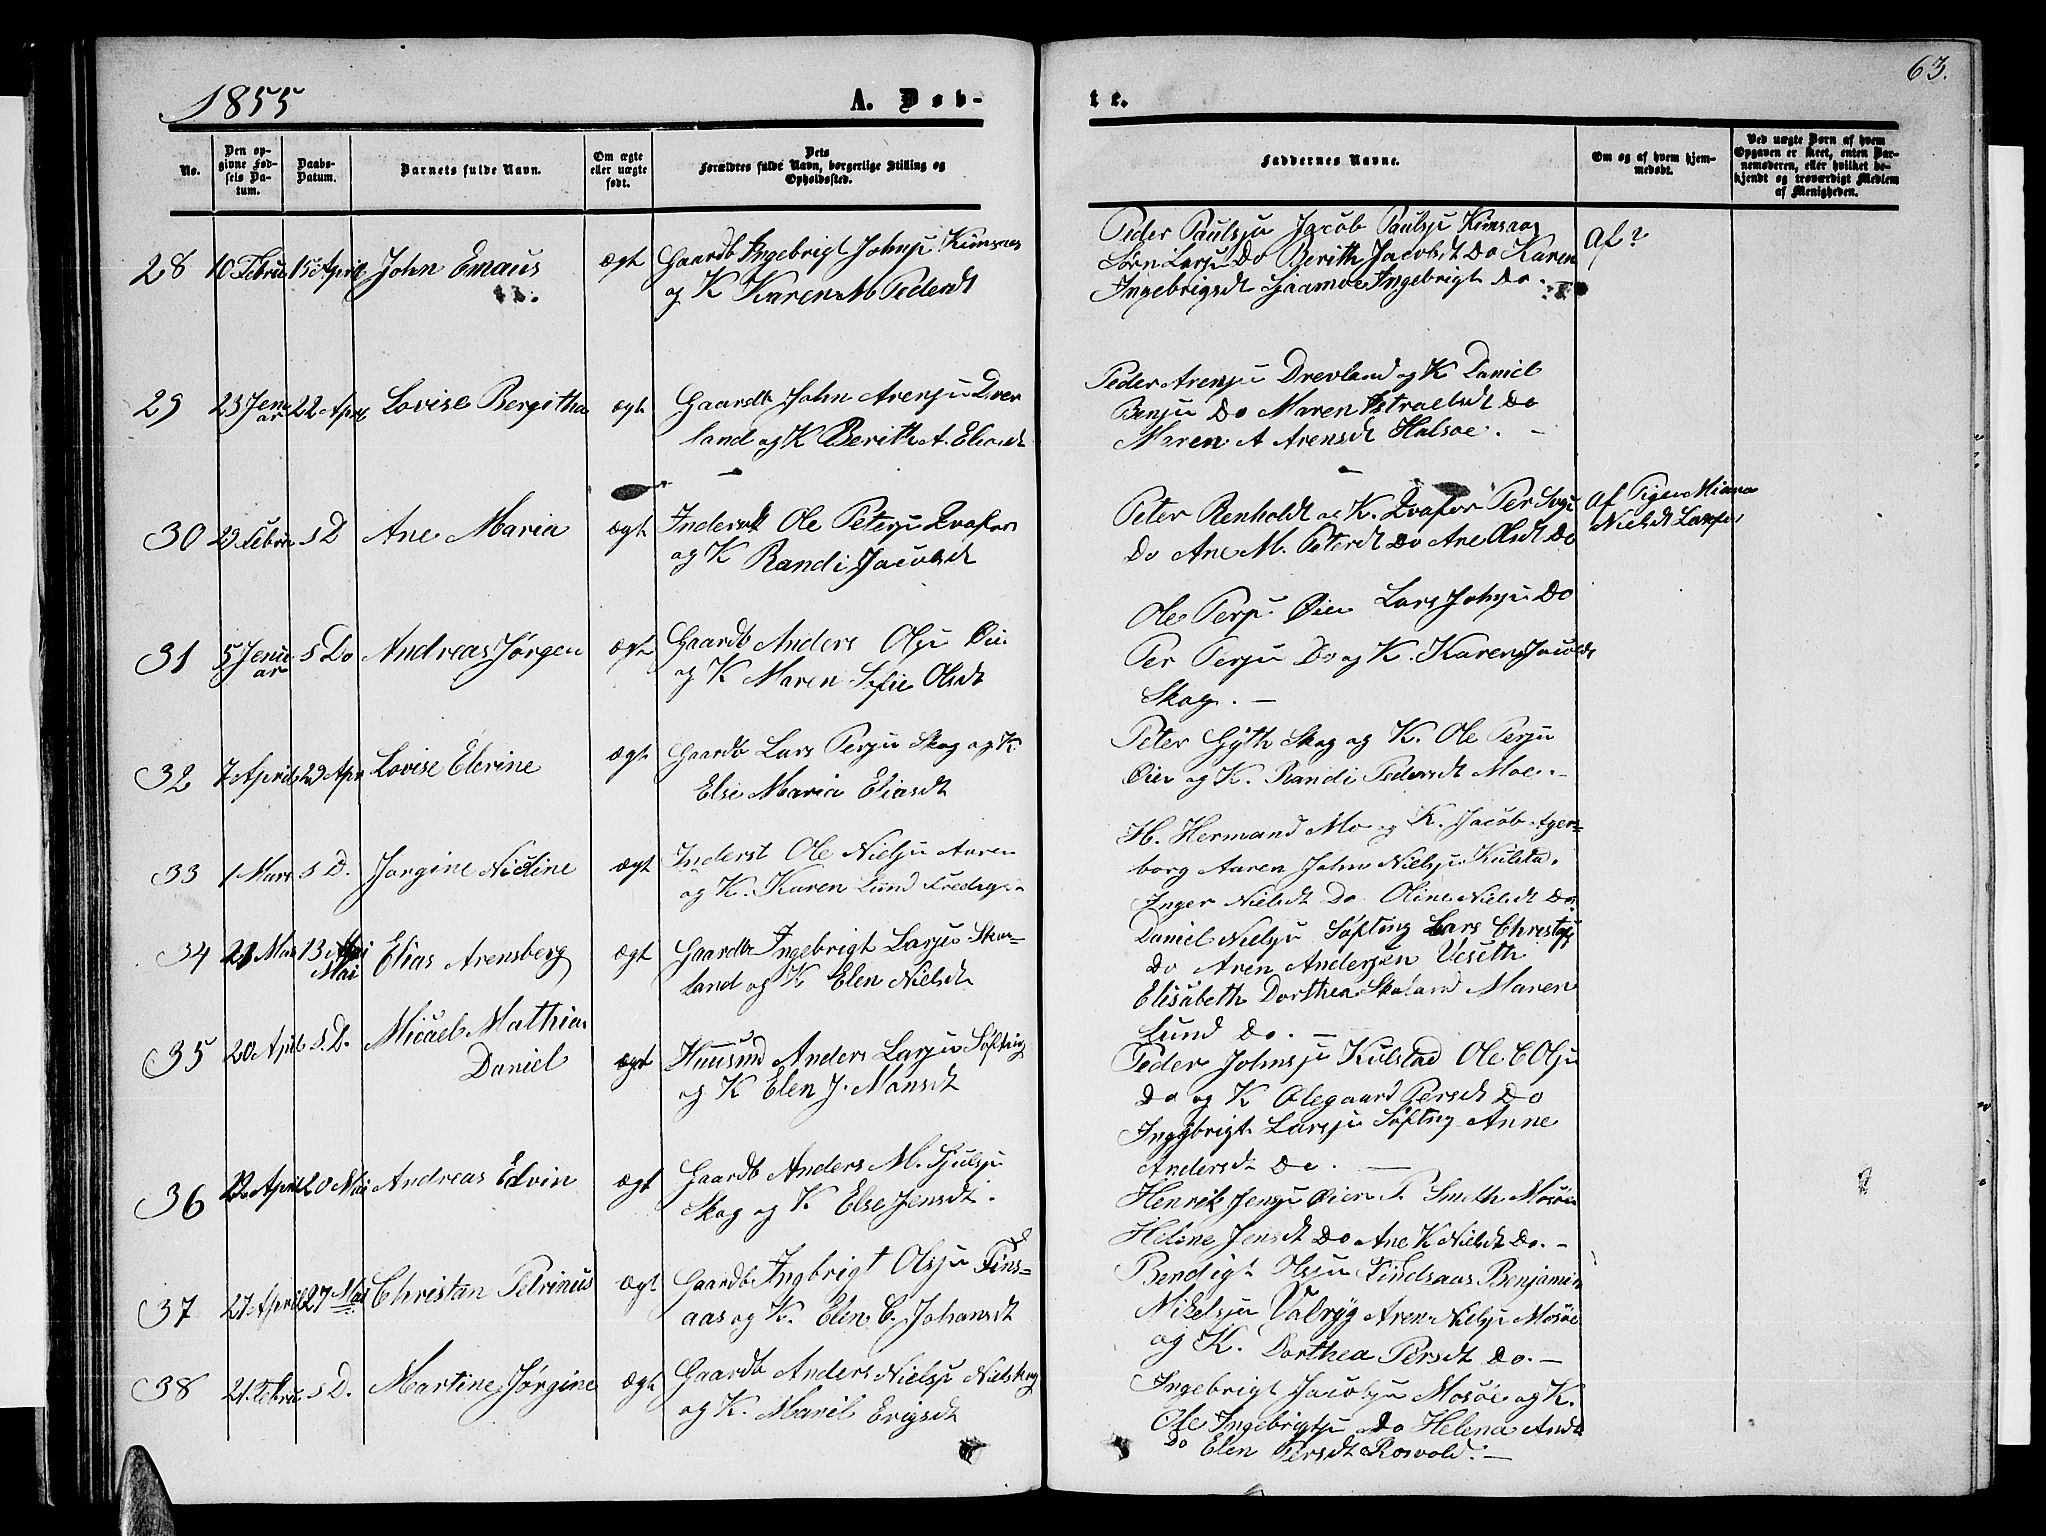 1855
A. Døb-
te.
63.
No.
Den op-
givne Fød-
sels Da-
tum.
Daabs-
Datum.
Barnets fulde Navn.
Om ægte
eller uægte
født.
Dets
Forældres fulde Navn, borgerlige Stilling og
Opholdssted.
Faddernes Navne.
Om og af hvem hjem-
medøbt.
Ved uægte Børn af hvem
Opgaven er skeet, enten Bar-
nemoderen, eller hvilket be-
kjendt og troværdigt Medlem
af Menigheden.
28 10 Febru 15 April John Emaus ægt Gaardb Ingebrigt Johnsn
og K Karen M Pedersdt
Peder Paulsn Jacob Paulsn
Sørn Larsn Do Berith Jacobsdt Do Karen
Ingebrigsdt Ingebrigt Do.
Af?
29 23 Jenu
ar 22 April Lovise Bergitha ægt Gaardb John Arensn Drev
land og K Berith A. Eliasdt
Peder Arensn Drevland og K Daniel
Bensn Do Maren Do
Maren A Arensdt Halsøe. -
30 29 Febru s D Ane Maria ægt Inderst Ole Petersn Qvafor
og K Randi Jacobsdt
Peter Renholdt og K. Qvafor Per
Do Ane M. Petersdt Do Ane Olsdt Do
Af Pigen
Nielsdt
31 5 Jenu
ar s Do Andreas Jørgen ægt Gaardb Anders Olsn Øien
og K Maren Sofie Olsdt
Ole Persn Øien Lars Johnsn Do
Per Persn Do og K. Karen Jacobsdt
Skog. -
32 7 April 29 Apr Lovise Elerine ægt Gaardb Lars Persn Skog og K.
Else Maria Eliasdt
Peter Gÿth Skog og K. Ole Persn
Øien og K. Randi Pedersdt Moe. -
33 1 Mars s D. Jørgine Nicoline ægt Inderst Ole Nielsn Aaren
og K. Karen Lund
H. Hermand Mo og K. Jacob Ager-
borg Aaren John Nielsn Kulstad.
Inger Nielsdt Do Oline Nielsdt Do.
34 21 Mars 13
Mai Elias Arensberg ægt Gaardb Ingebrigt Larsn Skar-
land og K Elen Nielsdt
Daniel Nielsn Søfting Lars
Do Aren Andersen Veseth
Elisabeth Dorthea Maren
Lund Do. -
35 20 April s. D. Micael Mathias
Daniel ægt Huusmd Anders Larsn Søfting
og K Elen J. Monsdt
Peder Johnsn Kulstad Ole C Olsn
Do og K Olegaard Persdt Do
Ingebrigt Larsn Søfting Anne
Andersdt Do. -
36 April 20 Mai Andreas Edvin ægt Gaardb Anders M.
Skog og K Else Jensdt.
Henrik Jensn Øien P. Smith Mosøen
Heline Jensdt Do Ane K Nielsdt Do. -
37 27 April 27 Mai Christan Petrinus ægt Gaardb Ingbrigt Olsn Finds-
aas og K. Elen C. Johansdt
Bendigt Olsn Findsaas Benjamin
Mikelsn Valryg Aren Nielsn Mosøe
og K. Dorthea Persdt Do. -
38 21 Febru s D. Martine Jørgine ægt Gaardb Anders Nielsn
og K. Marit Erigsdt
Ingebrigt Jacobsn Mosøe og K.
Ole Ingebrigtsn Do Helena Andt
Do Elen Persdt Rosvold. -